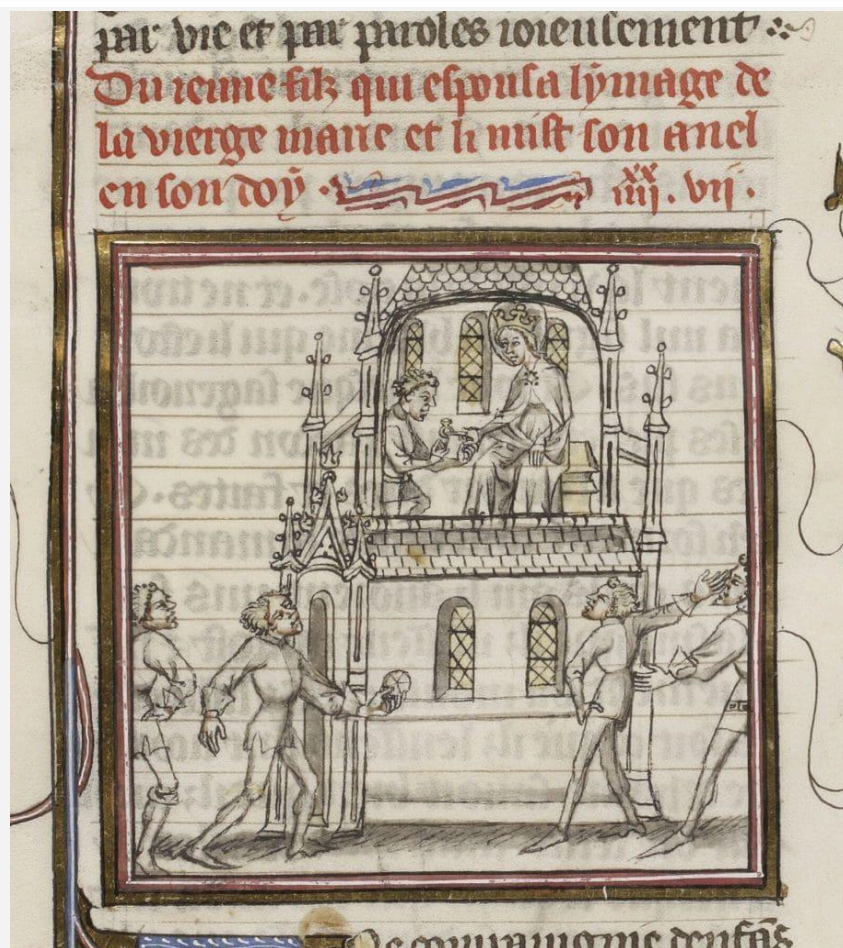 par vie et par paroles ioieusement
Du ienne filz qui espousa lymage de
la vierge marie et li mist son anel
en son doy iiii.xx vii.
De compaignie denfãs